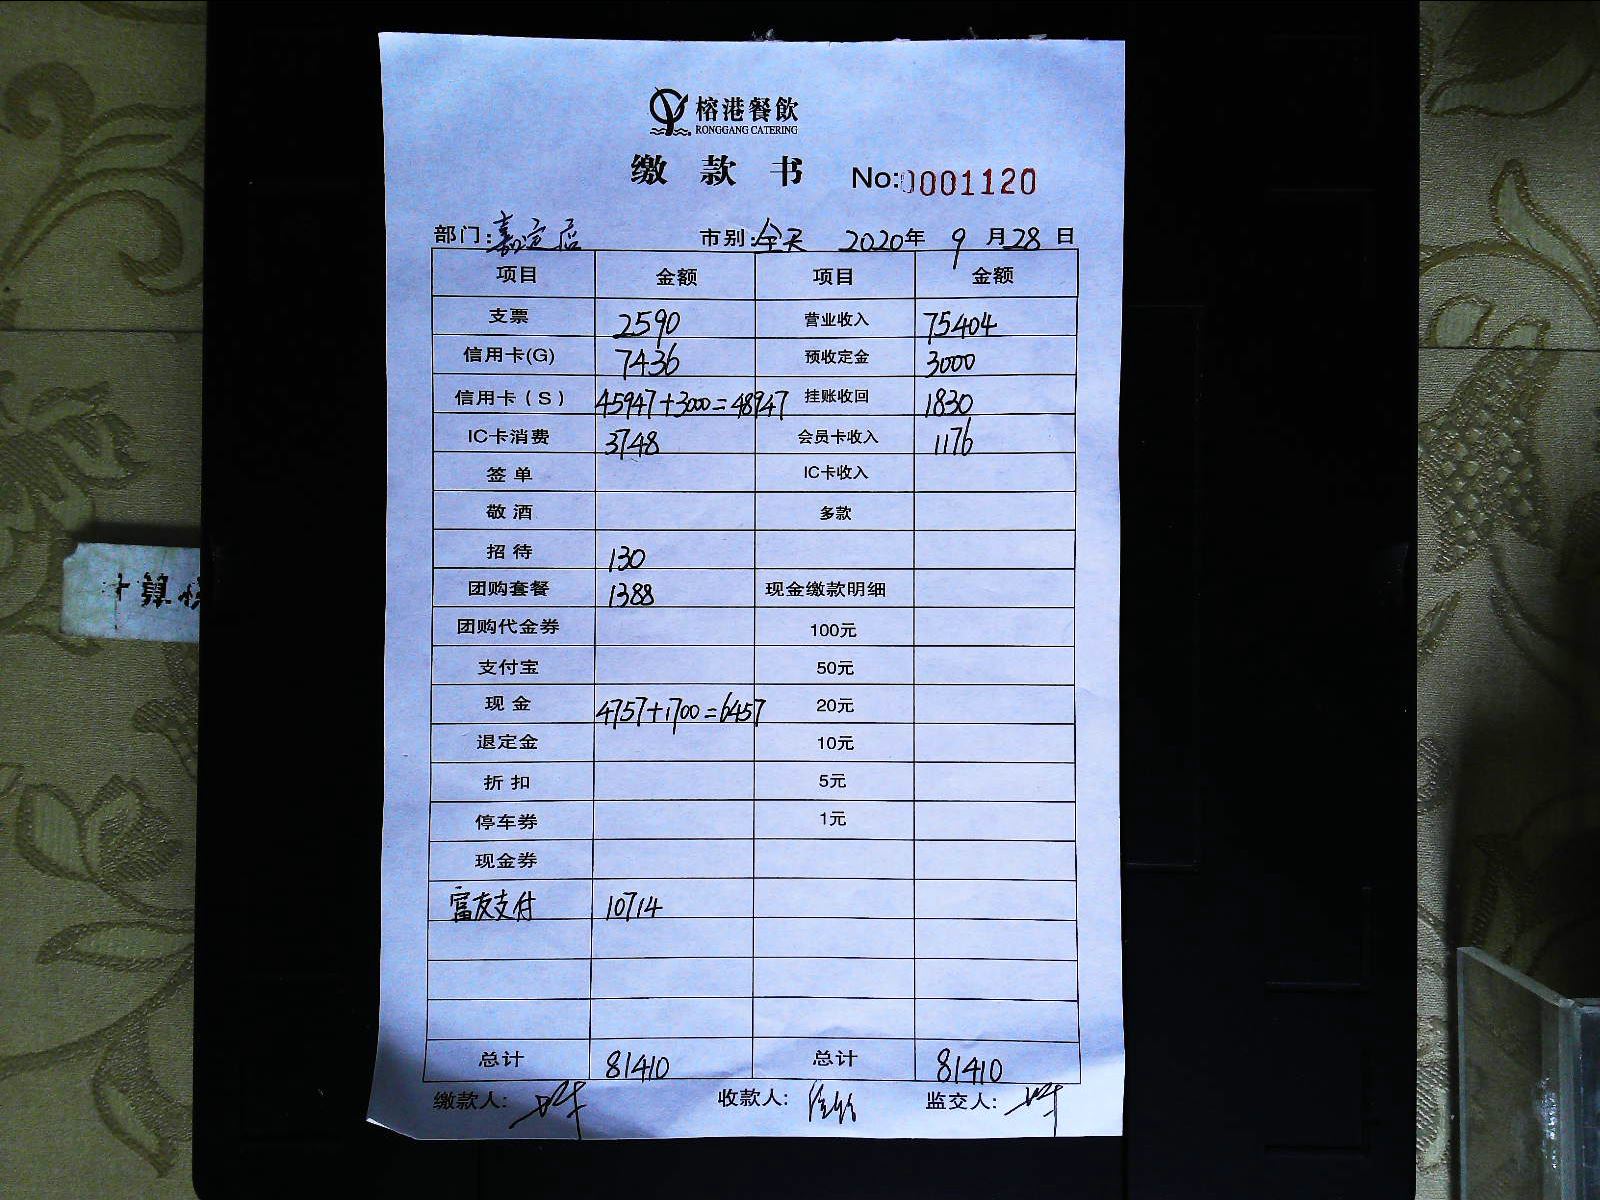 榕港餐飲
RONGGANG CATERING
缴款书 No:0001120
部门:嘉定店 市别:全天 2020年9月28日
项目 金额 项目 金额
支票 2590 营业收入 75404
信用卡(G) 7436 预收定金 3000
信用卡(S) 45947+3000=48947 挂账收回 1830
IC卡消费 3748 会员卡收入 1176
签单 IC卡收入
敬酒 多款
招待 130
团购套餐 1388 现金缴款明细
团购代金券 100元
支付宝 50元
现金 4757+1700=6457 20元
退定金 10元
折扣 5元
停车券 1元
现金券
富友支付 10714
总计 81410 总计 81410
缴款人: 收款人: 监交人: